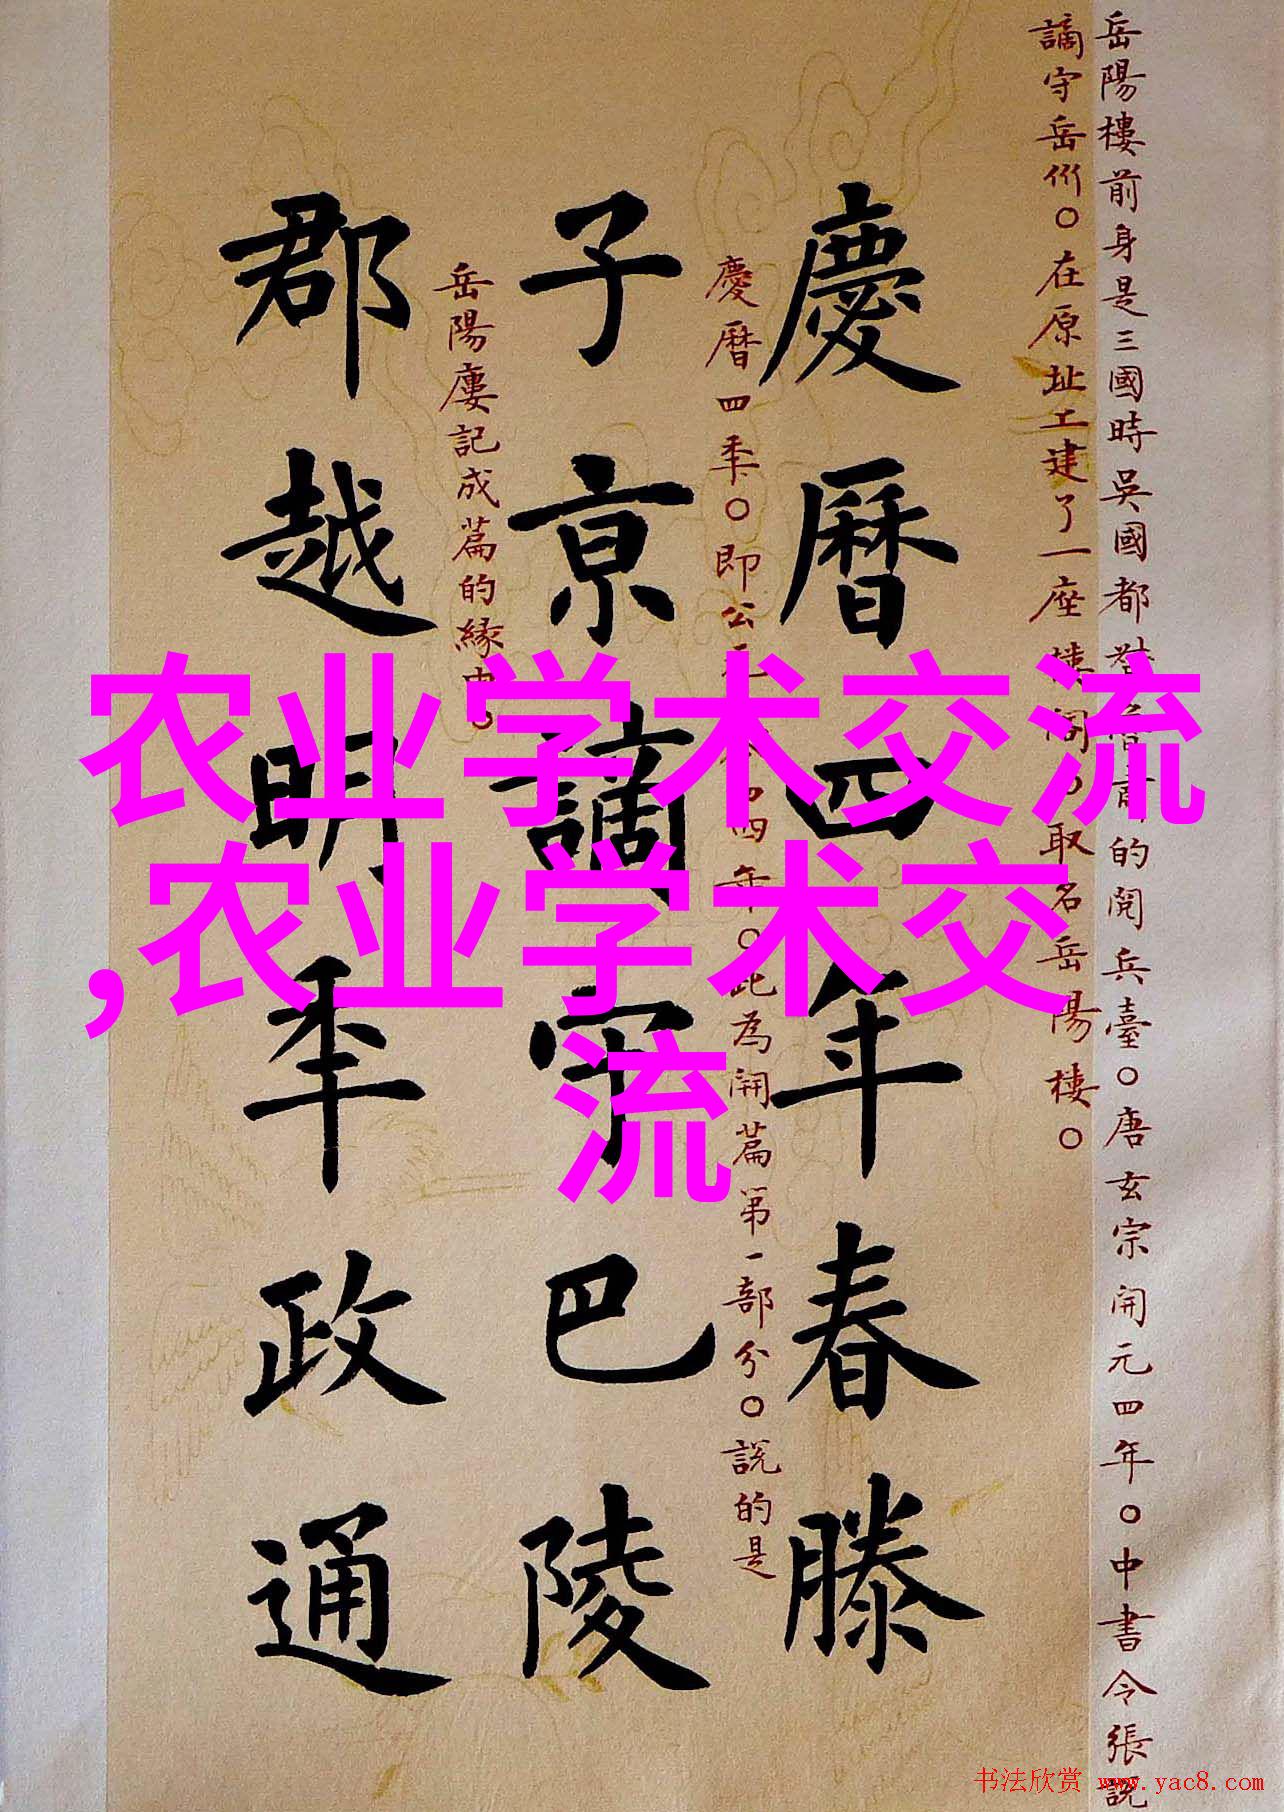 岳陽樓前身是三國時吳國都督魯肅的閱兵臺○唐玄宗開元四年○中書令張說
謫守岳州○在原址上建了一座樓閣○取名岳陽樓○
慶曆四年春滕
慶曆四年○即公元一零四四年○此為開篇第一部分○說的是
子京謫守巴陵
岳陽樓記成篇的緣由○
郡越明年政通
农业学术交流
,农业学术交
流
书法欣赏 www.yac8.com